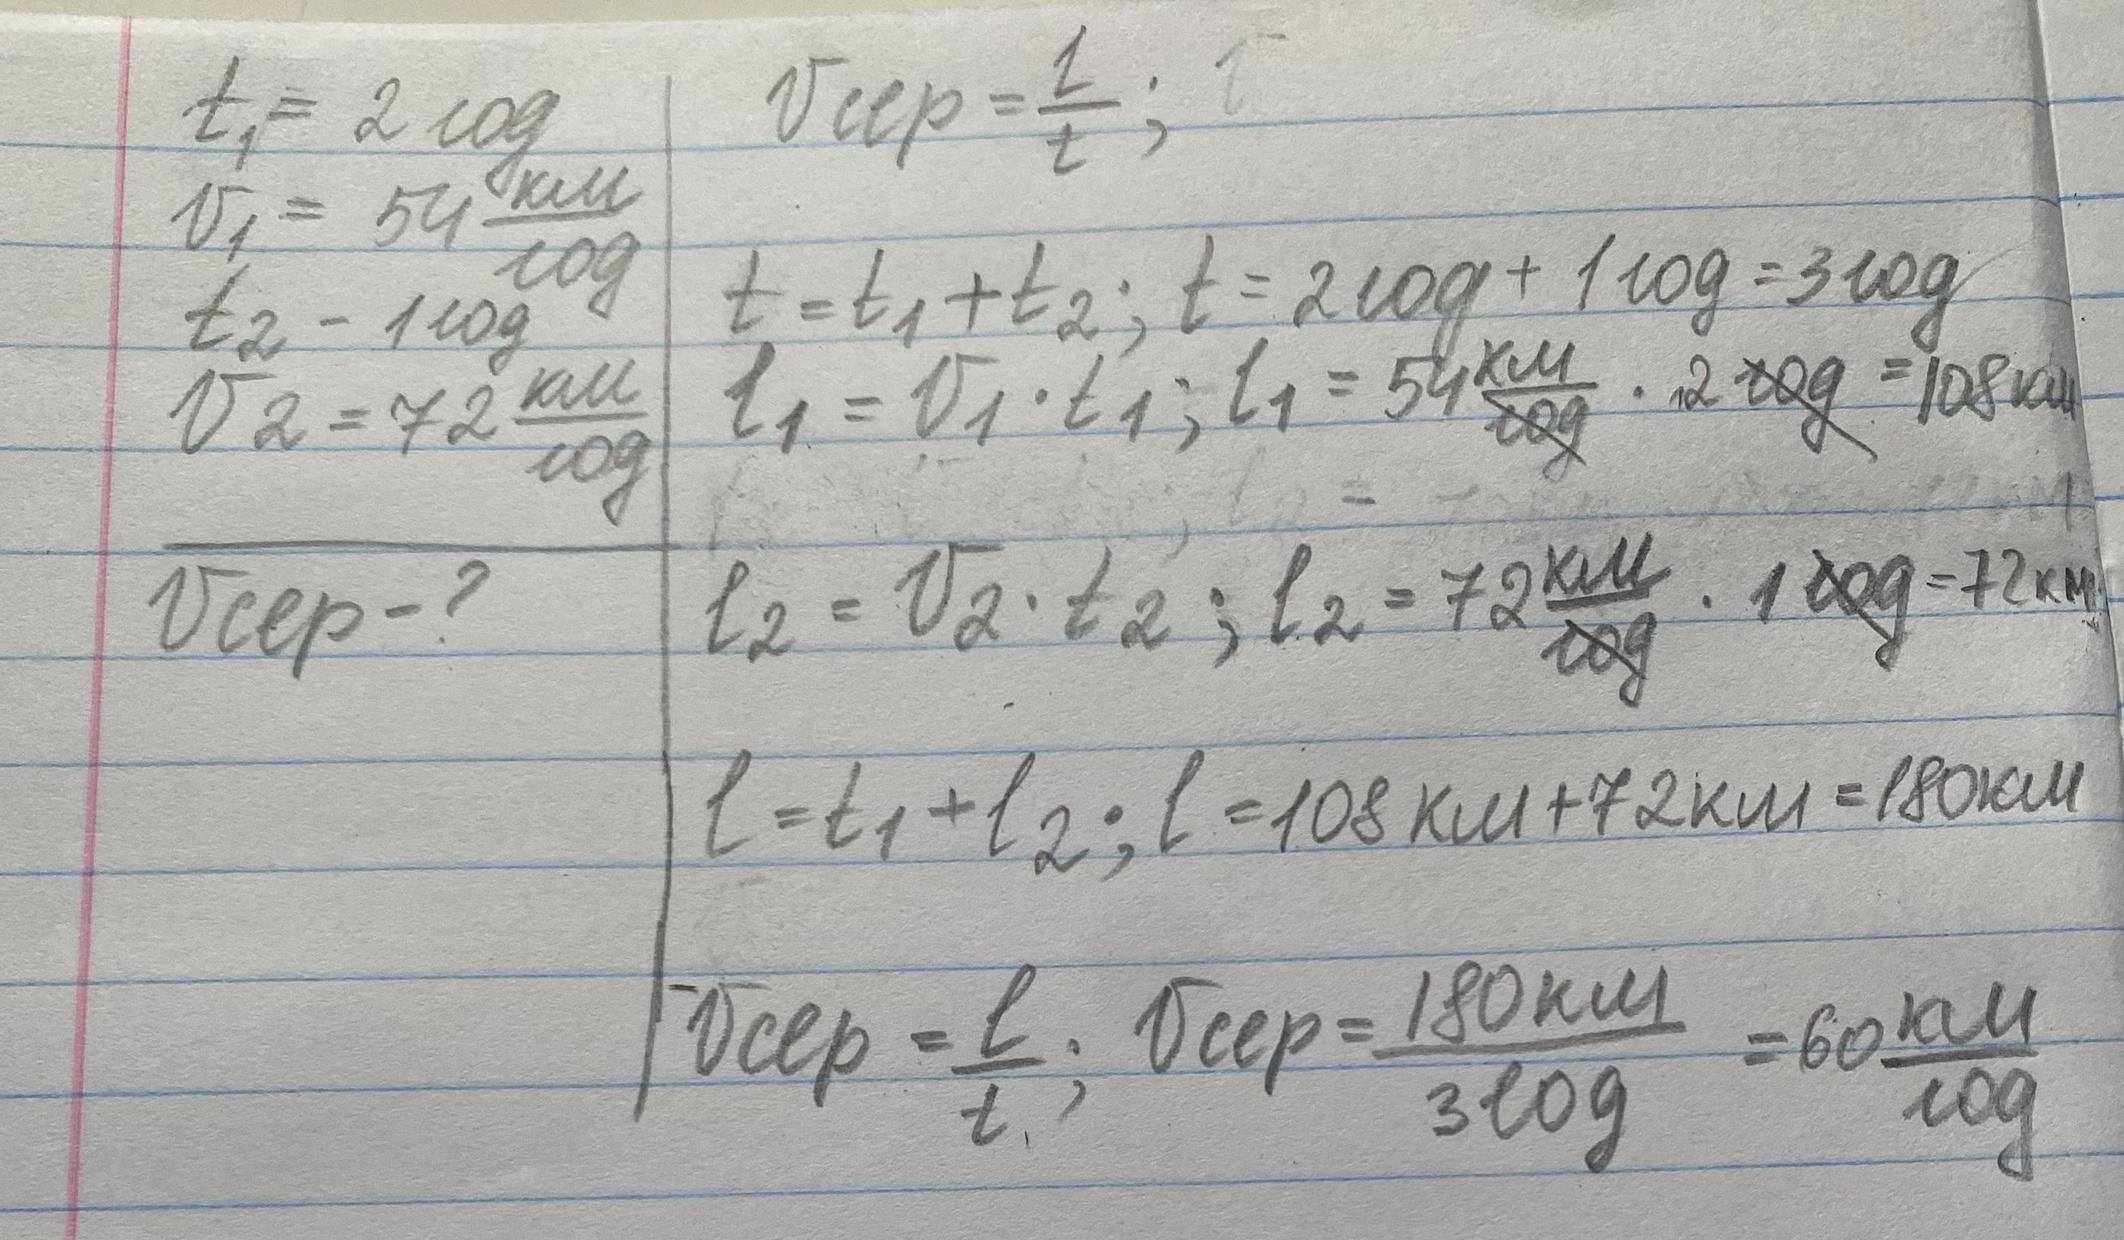 t₁ = 2 год
v₁ = 54 км/год
t₂ - 1 год
v₂ = 72 км/год
vсер - ?
vсер = l/t;
t = t₁ + t₂; t = 2 год + 1 год = 3 год
l₁ = v₁ · t₁; l₁ = 54 км/год · 2 год = 108 км
l₂ = v₂ · t₂; l₂ = 72 км/год · 1 год = 72 км
l = t₁ + l₂; l = 108 км + 72 км = 180 км
vсер = l/t; vсер = 180 км/3 год = 60 км/год